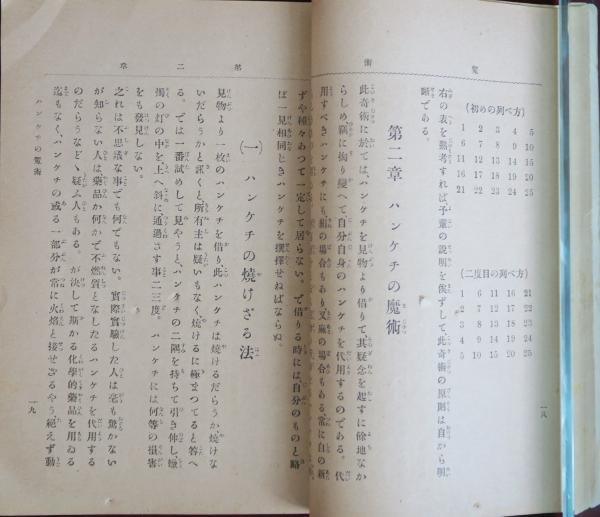 奇術
(初めの列べ方)
1 2 3 4 5
6 7 8 9 10
11 12 13 14 15
16 17 18 19 20
21 22 23 24 25
(二度目の列べ方)
1 6 11 16 21
2 7 12 17 22
3 8 13 18 23
4 9 14 19 24
5 10 15 20 25
一八
右の表を熟考すれば、予輩の説明を俟ずして、此奇術の原則は自から明
瞭である。
第二章 ハンケチの魔術
此奇術に於ては、ハンケチを見物より借りて其疑念を起すに餘地なか
らしめ、竊に掏り變へて自分自身のハンケチを代用するのである。代
用すべきハンケチにも、絹の場合もあり又麻の場合もある、常に自の新
ずや種々あつて一定して居らない。で借りる時には自分のものと略
ば一見相同じきハンケチを撰擇せねばならぬ。
第二章
(一) ハンケチの燒けざる法
見物より一枚のハンケチを借り、此ハンケチは燒けるだらうか燒けな
いだらうかと訊くと、所有主は疑いもなく、燒けるに極まつてると答へ
る。では一番試めして見やうと、ハンケチの二隅を持ちて引き伸し、蠟
燭の灯の中を、上へ斜に、通過さす事二三度。ハンケチには何等の損害
をも發見しない。
之れは不思議な事でも何でもない。實際實驗した人は毫も驚かない
が、知らない人は、藥品か何かで不燃質となしたるハンケチを代用する
のだらうなどゝ疑ふ人もある。が決して斯かる化學的藥品を用ゐる
迄もなく、ハンケチの或る一部分が常に火焰と接せざるやう、絕えず動
ハンケチの魔術
一九